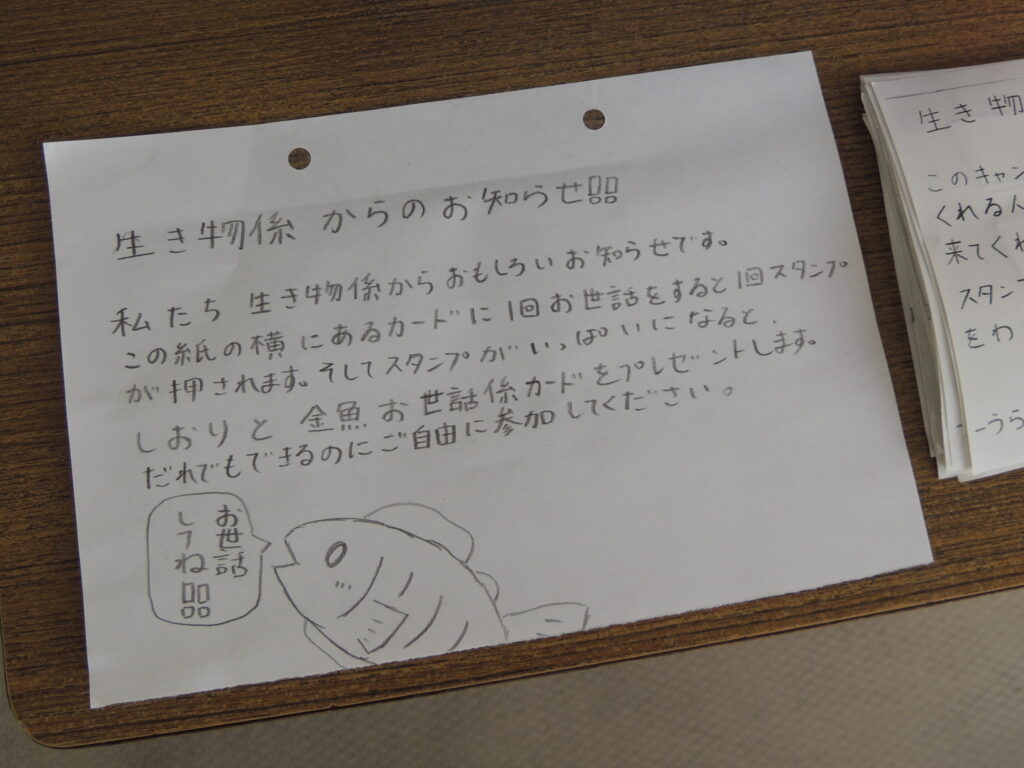 生き物係からのお知らせ!!
私たち 生き物係からおもしろいお知らせです。
この紙の横にあるカードに1回お世話をすると1回スタンプ
が押されます。そしてスタンプがいっぱいになると、
しおりと 金魚お世話係カードをプレゼントします。
だれでもできるのにご自由に参加してください。
お世話
してね!!
生き物
このキャン
くれる人
来てくれ
スタンプ
をわ
うら